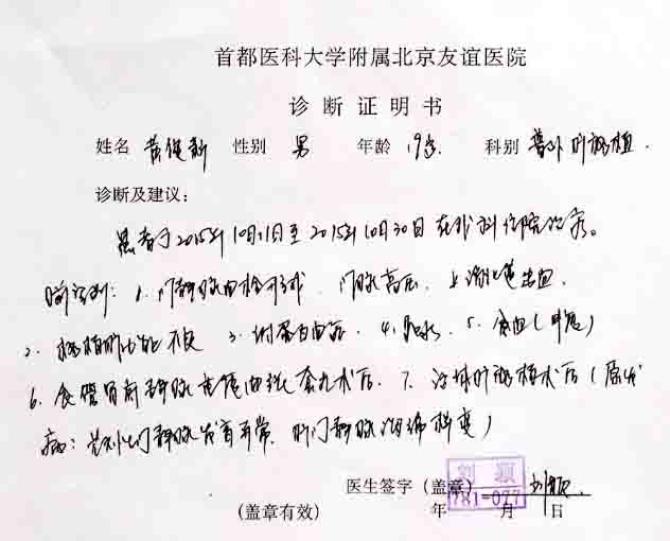 首都医科大学附属北京友谊医院
诊断证明书
姓名 黄健新 性别 男 年龄 19岁 科别 普外肝移植.
诊断及建议:
患者于2015年10月11日至2015年10月30日在我科住院治疗。
诊断: 1. 门静脉血栓形成 门脉高压 上消化道出血.
2. 移植肝功能不良 3. 低蛋白血症 4. 腹水 5. 贫血(中度)
6. 食管胃底静脉曲张套扎术后. 7. 活体肝移植术后(原发
病: 门静脉发育异常. 肝门静脉海绵样变)
医生签字(盖章) 刘颖
刘颖
781-077
(盖章有效) 年 月 日